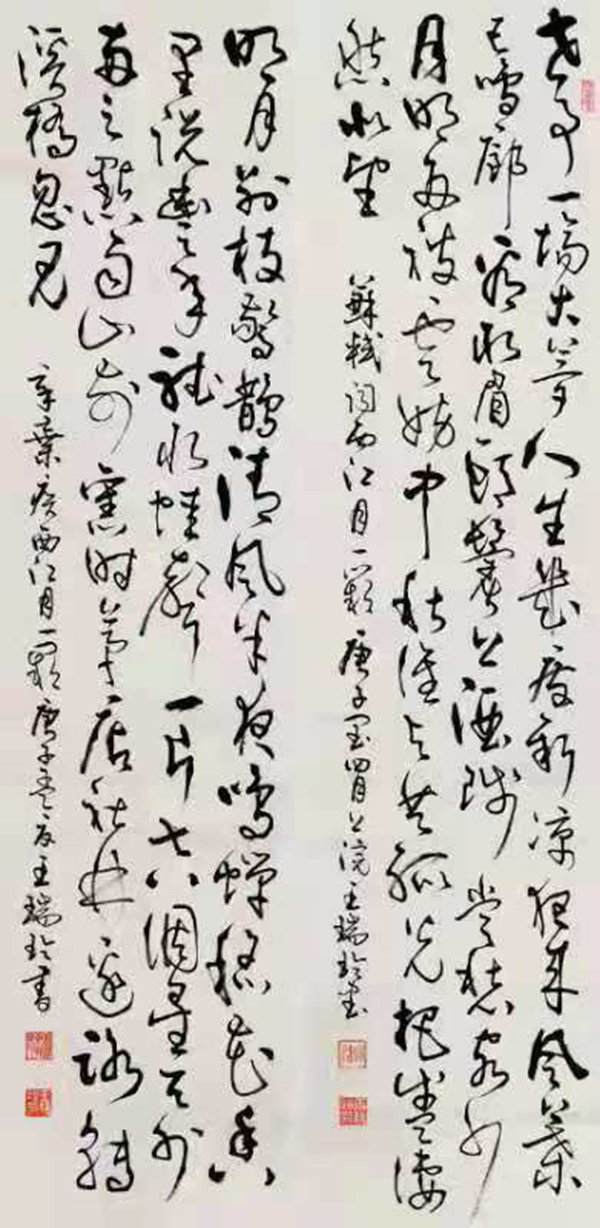 世事一場大夢人生幾度新涼夜來風葉
已鳴廊看取眉頭鬢上酒賤常愁客少
月明多被雲妨中秋誰與共孤光把盞淒
然北望 蘇軾詞西江月一闋 庚子閏四月上浣王瑞玲書
明月別枝驚鵲清風半夜鳴蟬稻花香
里說豐年聽取蛙聲一片七八個星天外
兩三點雨山前舊時茅店社林邊路轉
溪橋忽見 辛棄疾西江月一闋庚子孟夏王瑞玲書